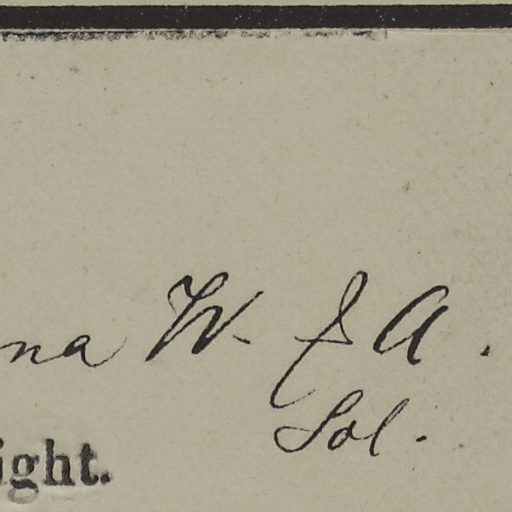 na W. & A.
Sol.
ight.